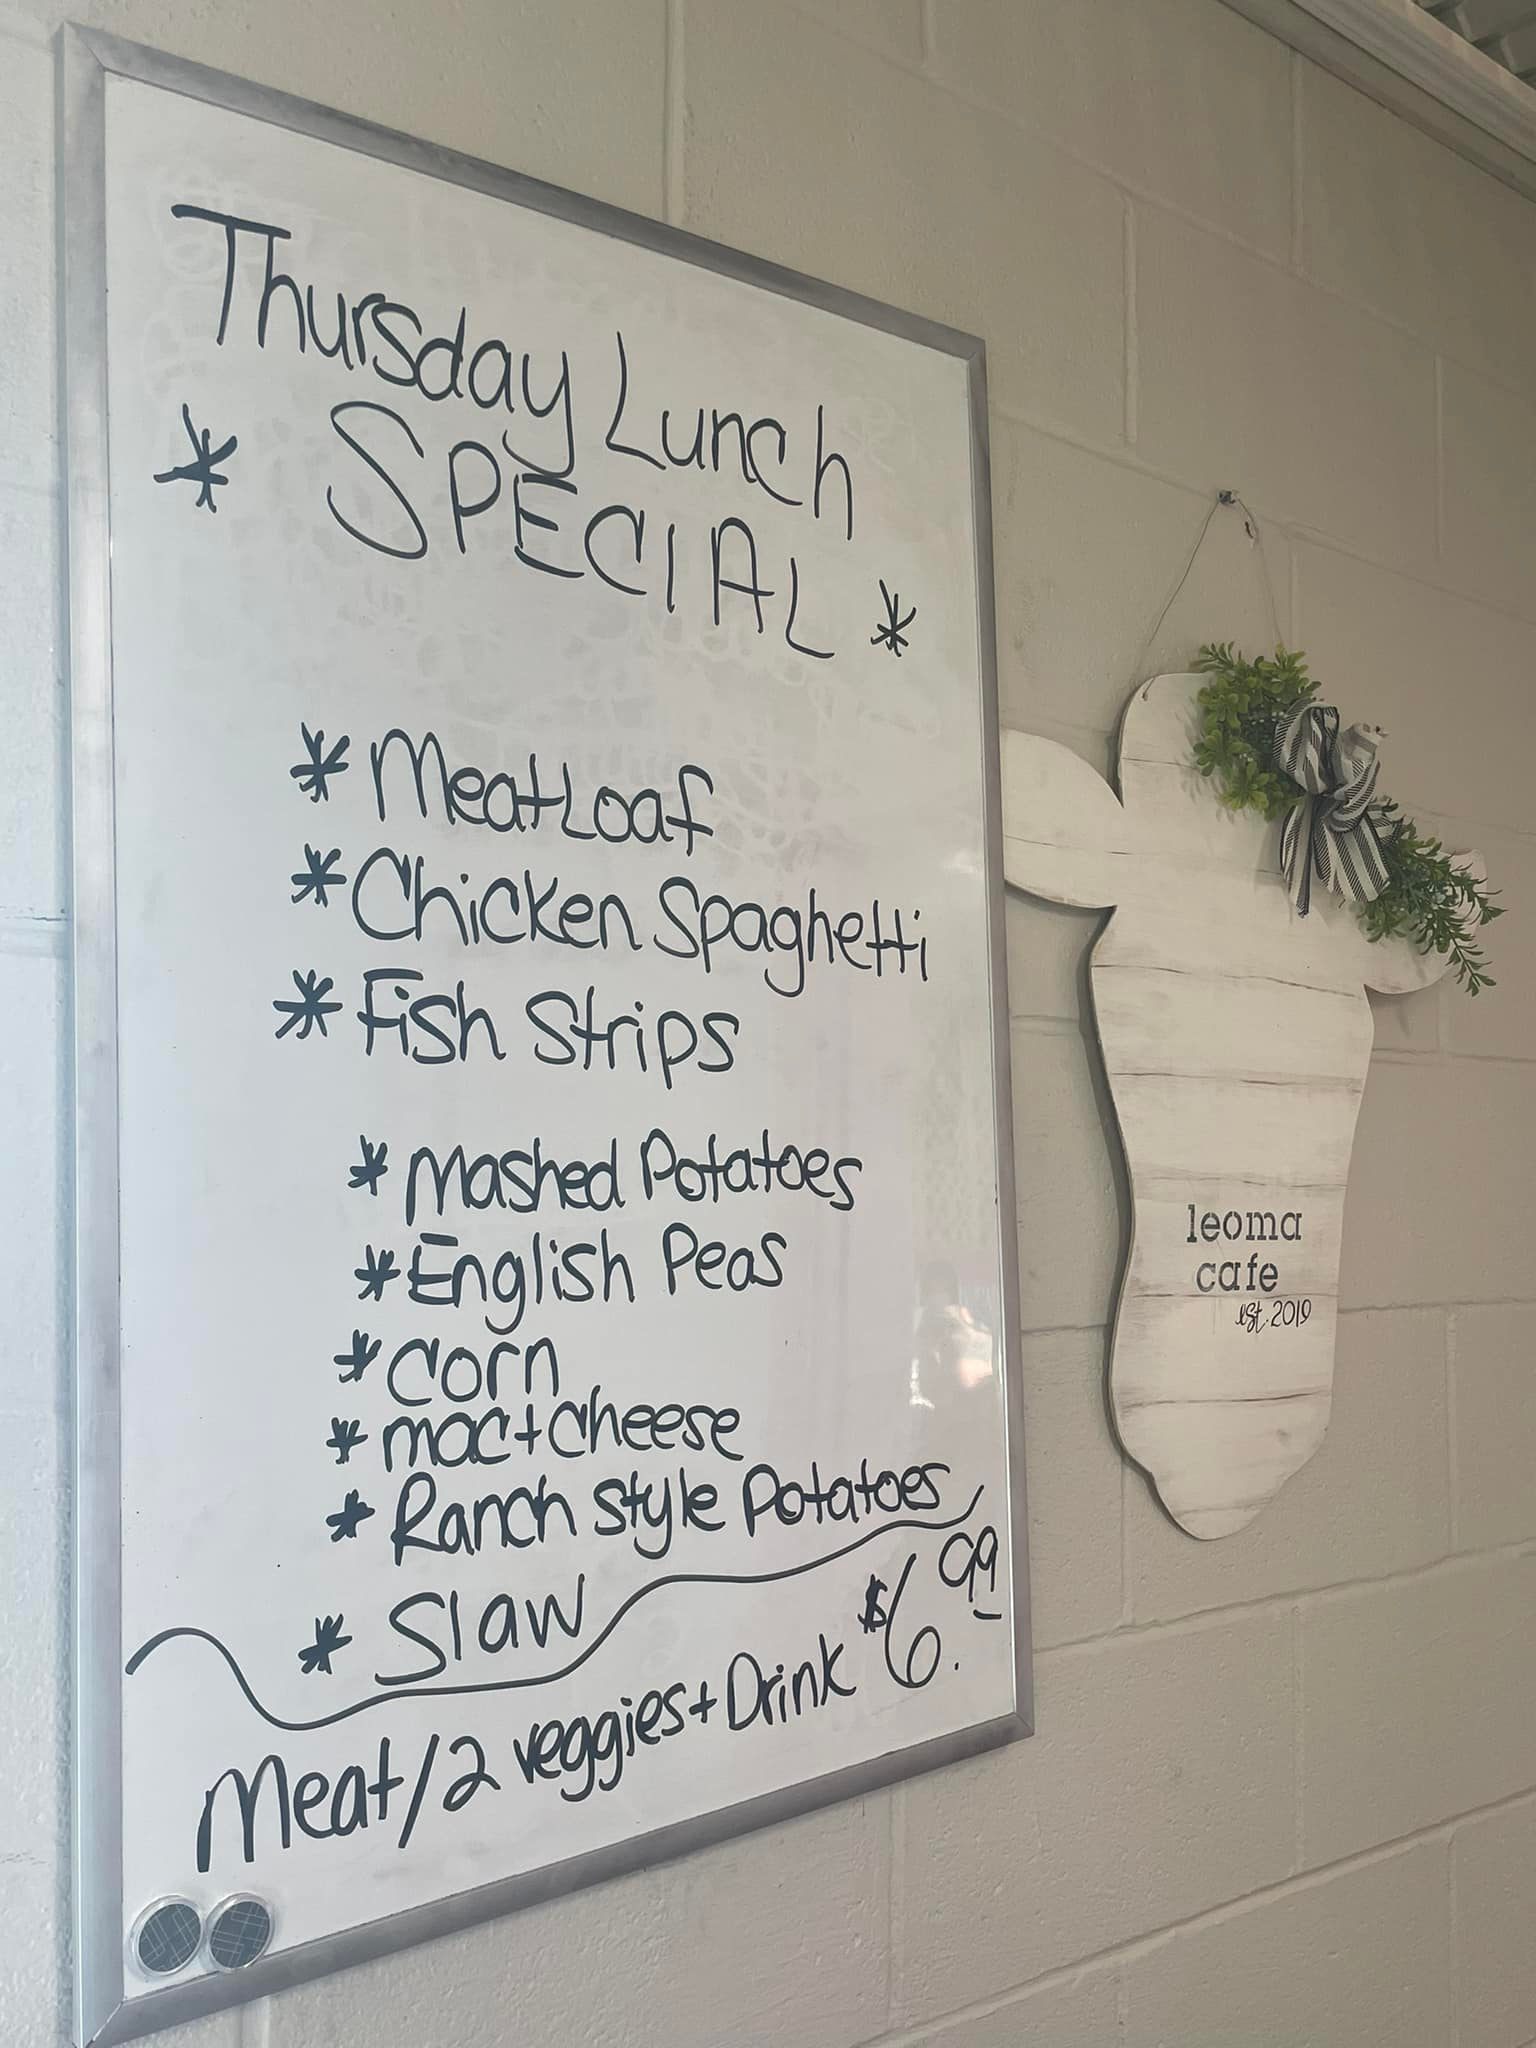 Thursday Lunch
* SPECIAL *
* Meatloaf
* Chicken Spaghetti
* Fish Strips
* Mashed Potatoes
* English Peas
* Corn
* mac + cheese
* Ranch Style Potatoes
* Slaw
Meat/2 veggies + Drink $6.99
leoma
cafe
est. 2019